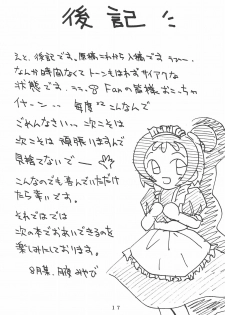 後記
えと、後記です。原稿これから入稿です。うひー。
なんか時間なくてトーンもはれずサイアクな
状態です。
Fanの皆様おこっちゃ
イヤーン 毎度こんなんで
ごめんなさい… 次こそは
次こそは 頑張りますんで
見捨てないでー
こんなのでも喜んでいただけ
たら幸いです。
それではでは
次の本でおあいできるのを
楽しみにしております。
8月某日
17